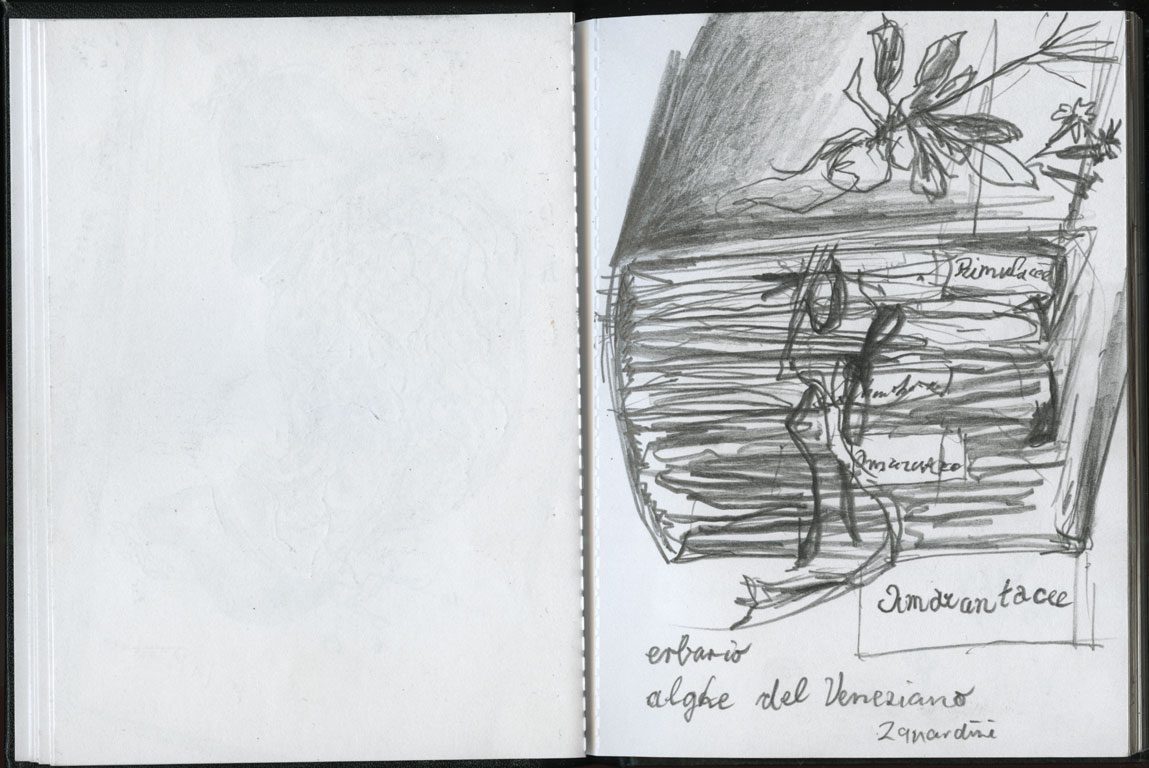 Primulacee
Amarantacee
erbario
alghe del Veneziano
Zanardini